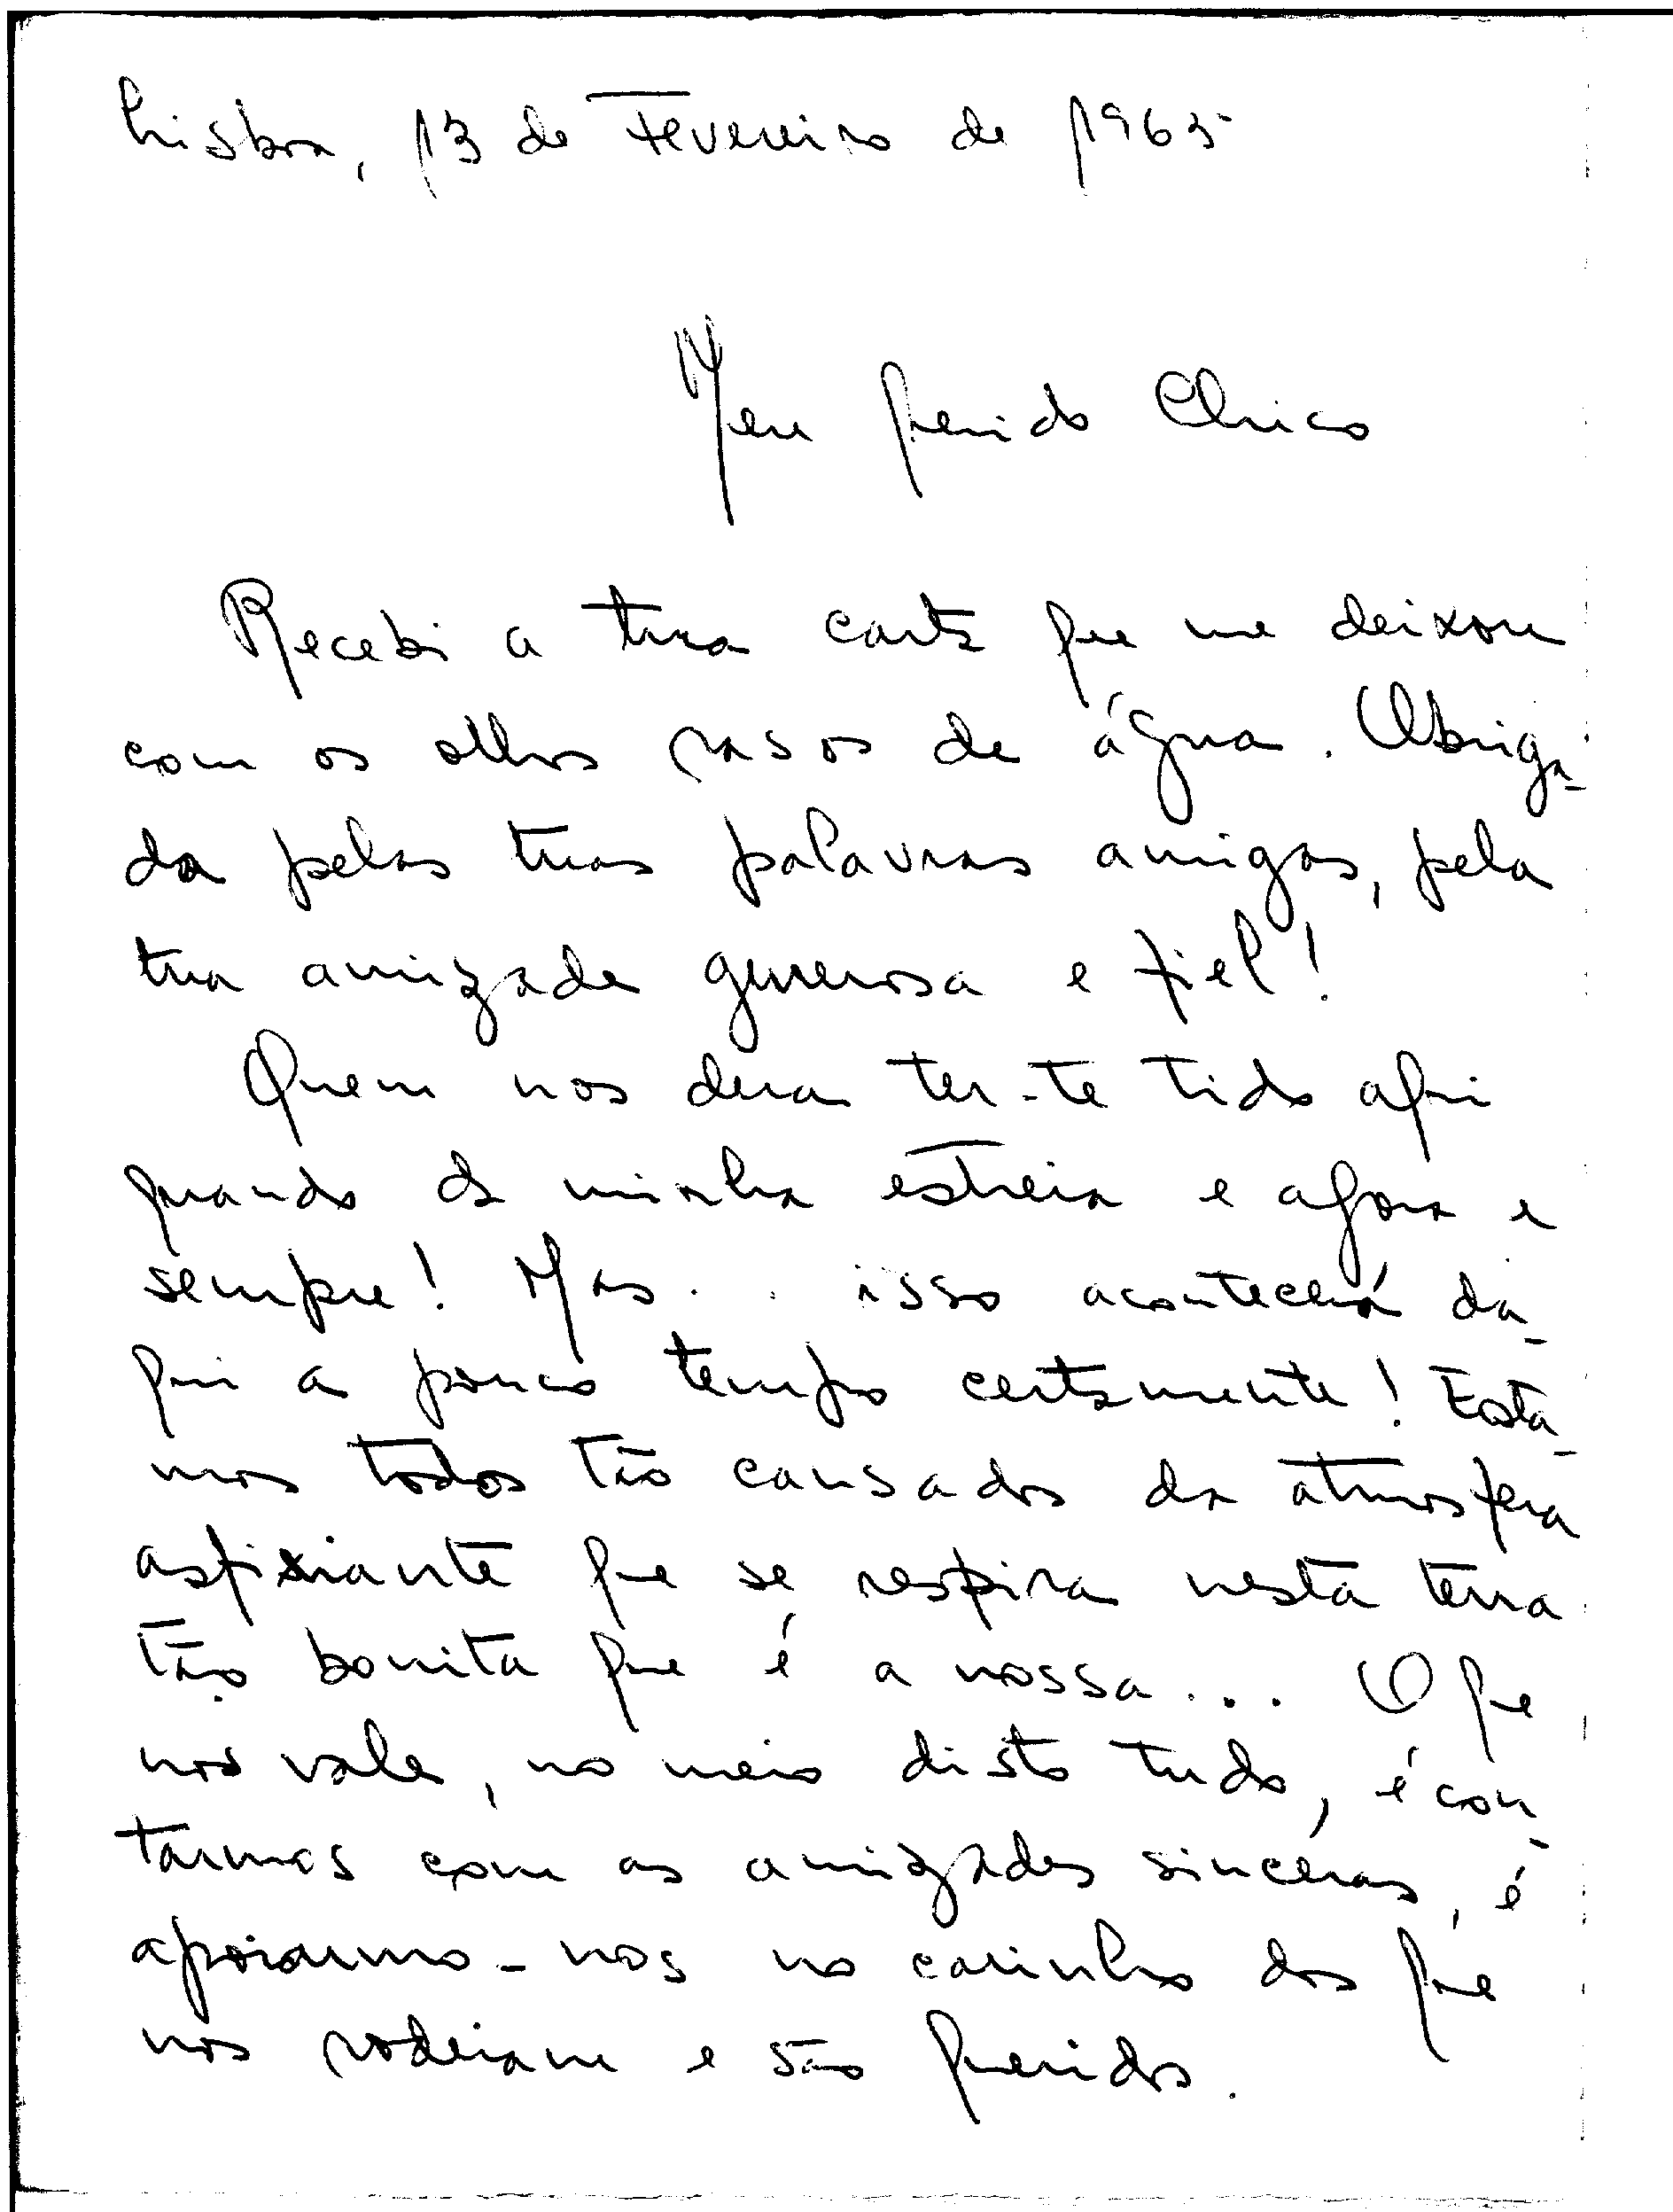 Lisboa, 13 de Fevereiro de 1965
Meu querido Chico
Recebi a tua carta que me deixou
com os olhos rasos de água. Obriga-
da pelas tuas palavras amigas, pela
tua amizade generosa e fiel!
Quem nos dera ter-te tido aqui
quando da minha estreia e agora e
sempre! Mas... isso acontecerá da-
qui a pouco tempo certamente! Esta-
mos todos tão cansados da atmosfera
asfixiante que se respira nesta terra
tão bonita que é a nossa... O que
nos vale, no meio disto tudo, é con-
tarmos com as amizades sinceras, é
apoiarmo-nos no carinho dos que
nos rodeiam e são queridos.